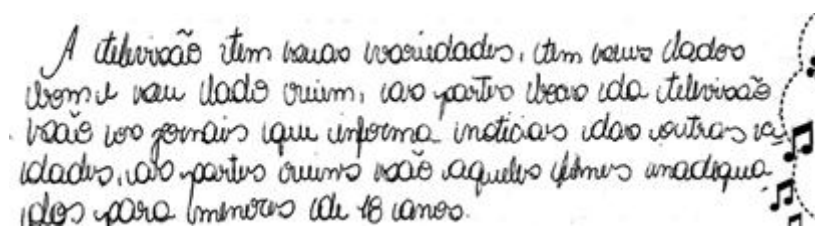 A televisão tem suas variedades, tem seus lados
bom e seu lado ruim, as partes boas da televisão
são os jornais que informa noticias das outras ci
dades, as partes ruins são aqueles filmes inadequa
dos para menores de 18 anos.